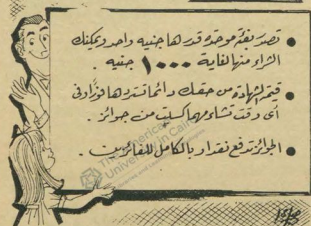 ● تصدر بفئة موحدة قدرها جنيه واحد ويمكنك
الشراء منها لغاية ١٠٠٠ جنيه .
● قيمة الشهادة من حقك دائما تستردها فورا فى
أى وقت تشاء ومهما كسبت من جوائز .
● الجوائز تدفع نقدا وبالكامل للفائزين .
The American
University in Cairo